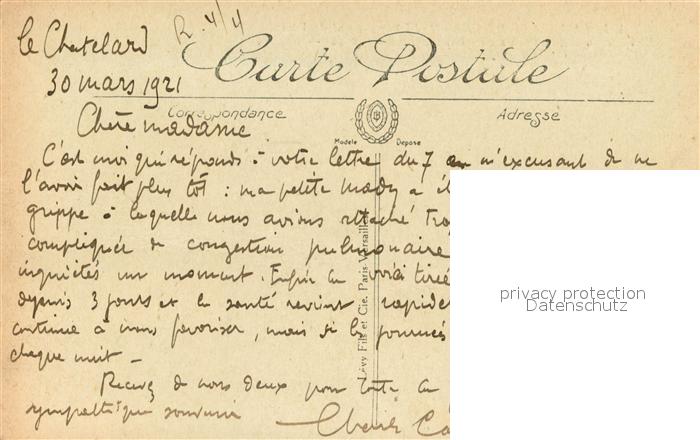 le Chatelard
R. 4/4
30 mars 1921
Carte Postale
Correspondance
Adresse
Chère madame
Modèle Déposé
C'est moi qui réponds à votre lettre du 7 en m'excusant de ne
l'avoir fait plus tôt : ma petite mady a
grippe à laquelle nous avions attaché
compliquée de congestion pulmonaire
inquiétés un moment. Enfin la voici tirée
depuis 3 jours et la santé revient
continue à nous favoriser, mais si les
chaque nuit -
Recevez de nous deux pour toute la
sympathique souvenir
Lévy Fils et Cie, Paris-Versailles
privacy protection
Datenschutz